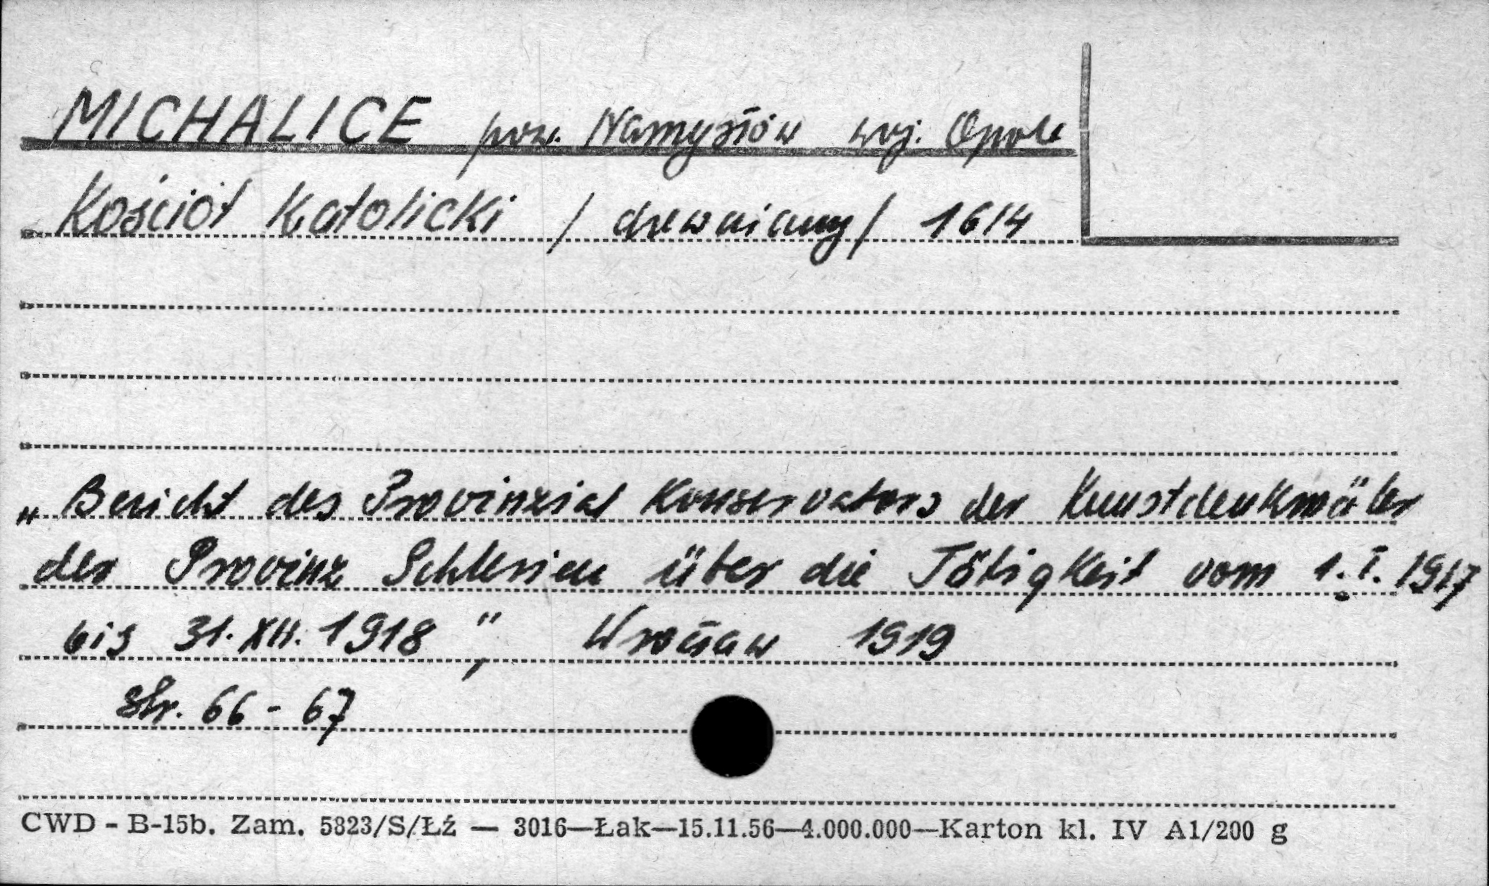 MICHALICE pow. Namysłów woj. Opole
Kościół Katolicki / drewniany / 1614
„Bericht des Provinzial Konservators der Kunstdenkmäler
der Provinz Schlesien über die Tätigkeit vom 1.I.1917
bis 31.XII.1918", Wrocław 1919
Str. 66-67
CWD - B-15b. Zam. 5823/S/Łź — 3016—Łak—15.11.56—4.000.000—Karton kl. IV A1/200 g